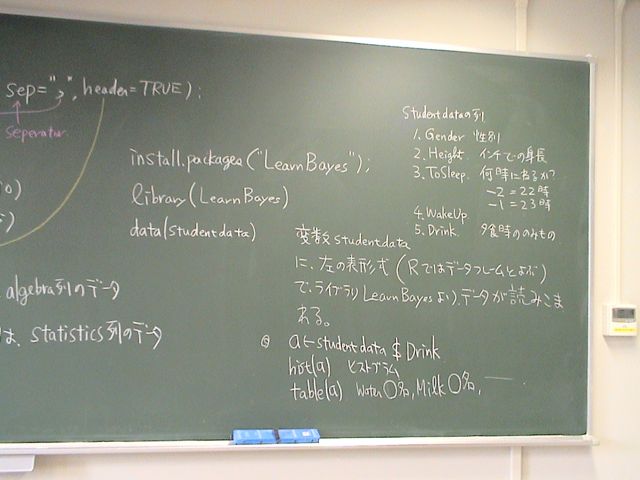 sep=",", header=TRUE);
Seperator
install.packages("LearnBayes");
library(LearnBayes)
data(studentdata)
algebra列のデータ
は、statistics列のデータ
Studentdataの列
1. Gender 性別
2. Height インチでの身長
3. ToSleep 何時にねるか?
-2=22時
-1=23時
4. WakeUp
5. Drink 夕食時ののみもの
変数studentdata
に、左の表形式(Rではデータフレームとよぶ)
で、ライブラリLearnBayesより、データが読みこま
れる。
a←studentdata$Drink
hist(a) ヒストグラム
table(a) Water○名, Milk○名,